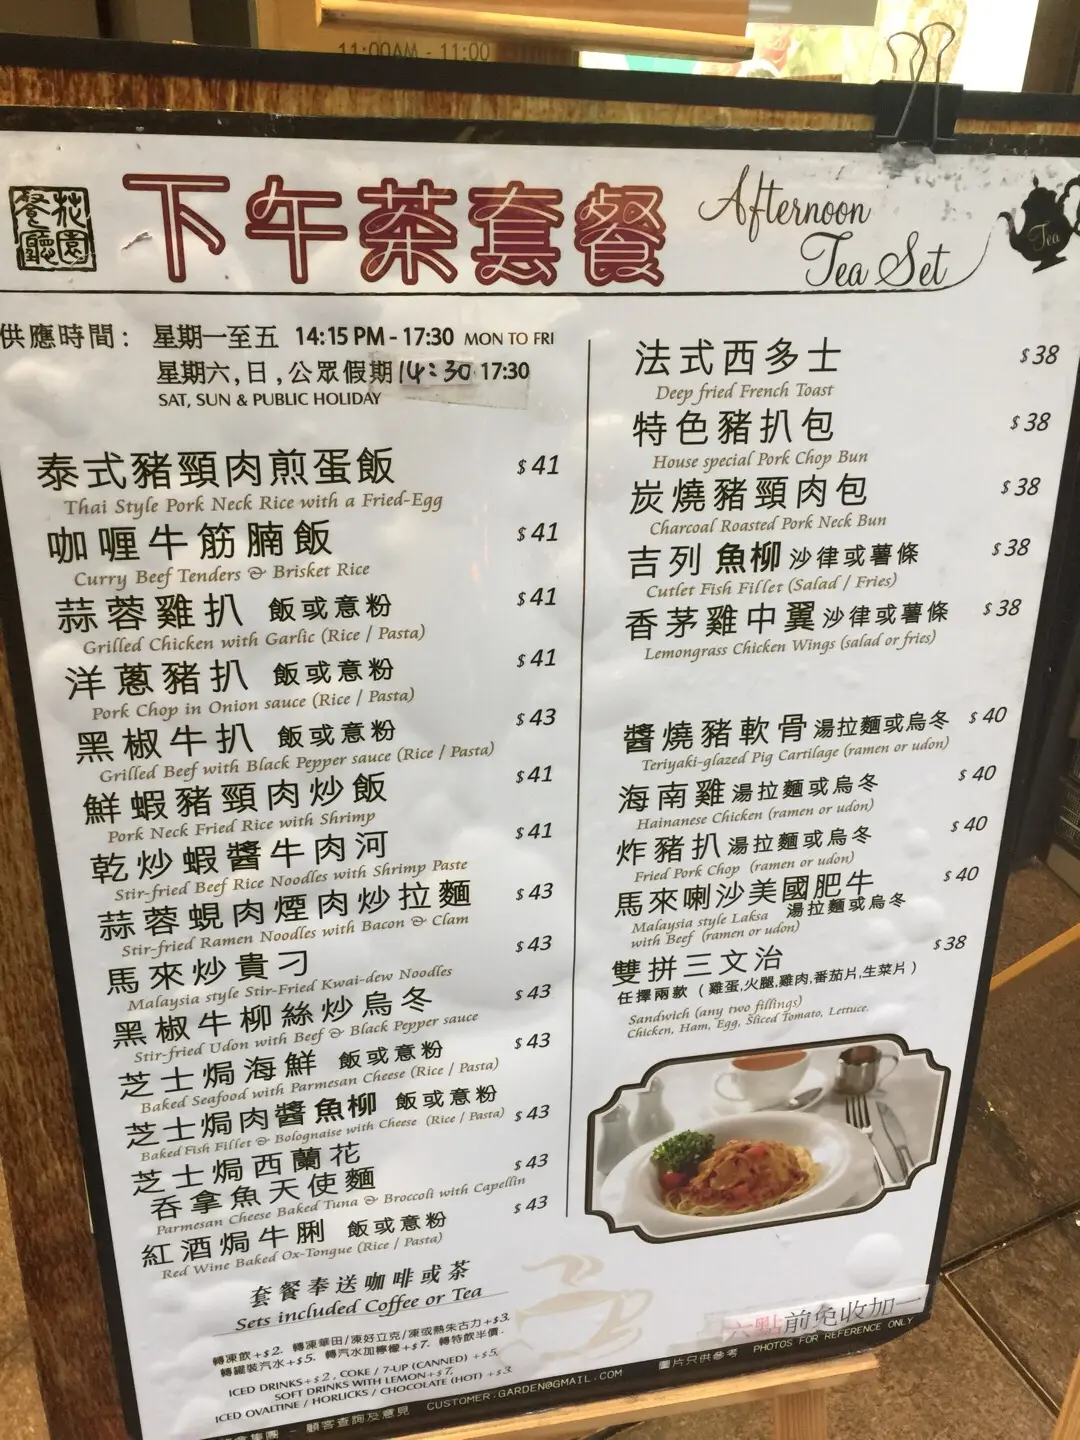 11:00AM - 11:00
花園餐廳
下午茶套餐
Afternoon
Tea Set
Tea
供應時間： 星期一至五 14:15 PM - 17:30 MON TO FRI
星期六,日,公眾假期 14:30 17:30
SAT, SUN & PUBLIC HOLIDAY
泰式豬頸肉煎蛋飯 $41
Thai Style Pork Neck Rice with a Fried-Egg
咖喱牛筋腩飯 $41
Curry Beef Tenders & Brisket Rice
蒜蓉雞扒 飯或意粉 $41
Grilled Chicken with Garlic (Rice / Pasta)
洋蔥豬扒 飯或意粉 $41
Pork Chop in Onion sauce (Rice / Pasta)
黑椒牛扒 飯或意粉 $43
Grilled Beef with Black Pepper sauce (Rice / Pasta)
鮮蝦豬頸肉炒飯 $41
Pork Neck Fried Rice with Shrimp
乾炒蝦醬牛肉河 $41
Stir-fried Beef Rice Noodles with Shrimp Paste
蒜蓉蜆肉煙肉炒拉麵 $43
Stir-fried Ramen Noodles with Bacon & Clam
馬來炒貴刁 $43
Malaysia style Stir-Fried Kwai-dew Noodles
黑椒牛柳絲炒烏冬 $43
Stir-fried Udon with Beef & Black Pepper sauce
芝士焗海鮮 飯或意粉 $43
Baked Seafood with Parmesan Cheese (Rice / Pasta)
芝士焗肉醬魚柳 飯或意粉 $43
Baked Fish Fillet & Bolognaise with Cheese (Rice / Pasta)
芝士焗西蘭花
吞拿魚天使麵 $43
Parmesan Cheese Baked Tuna & Broccoli with Capellin
紅酒焗牛脷 飯或意粉 $43
Red Wine Baked Ox-Tongue (Rice / Pasta)
套餐奉送咖啡或茶
Sets included Coffee or Tea
轉凍飲+$2. 轉凍華田/凍好立克/凍或熱朱古力+$3.
轉罐裝汽水+$5. 轉汽水加檸檬+$7. 轉特飲半價.
ICED DRINKS+$2, COKE / 7-UP (CANNED) +$5,
SOFT DRINKS WITH LEMON+$7,
ICED OVALTINE / HORLICKS / CHOCOLATE (HOT) +$3.
法式西多士 $38
Deep fried French Toast
特色豬扒包 $38
House special Pork Chop Bun
炭燒豬頸肉包 $38
Charcoal Roasted Pork Neck Bun
吉列魚柳 沙律或薯條 $38
Cutlet Fish Fillet (Salad / Fries)
香茅雞中翼 沙律或薯條 $38
Lemongrass Chicken Wings (salad or fries)
醬燒豬軟骨 湯拉麵或烏冬 $40
Teriyaki-glazed Pig Cartilage (ramen or udon)
海南雞 湯拉麵或烏冬 $40
Hainanese Chicken (ramen or udon)
炸豬扒 湯拉麵或烏冬 $40
Fried Pork Chop (ramen or udon)
馬來喇沙美國肥牛 $40
Malaysia style Laksa 湯拉麵或烏冬
with Beef (ramen or udon)
雙拼三文治 $38
任擇兩款 (雞蛋,火腿,雞肉,番茄片,生菜片)
Sandwich (any two fillings)
Chicken, Ham, Egg, Sliced Tomato, Lettuce.
六點前免收加一
圖片只供參考 PHOTOS FOR REFERENCE ONLY
集團 - 顧客查詢及意見 CUSTOMER.GARDEN@GMAIL.COM